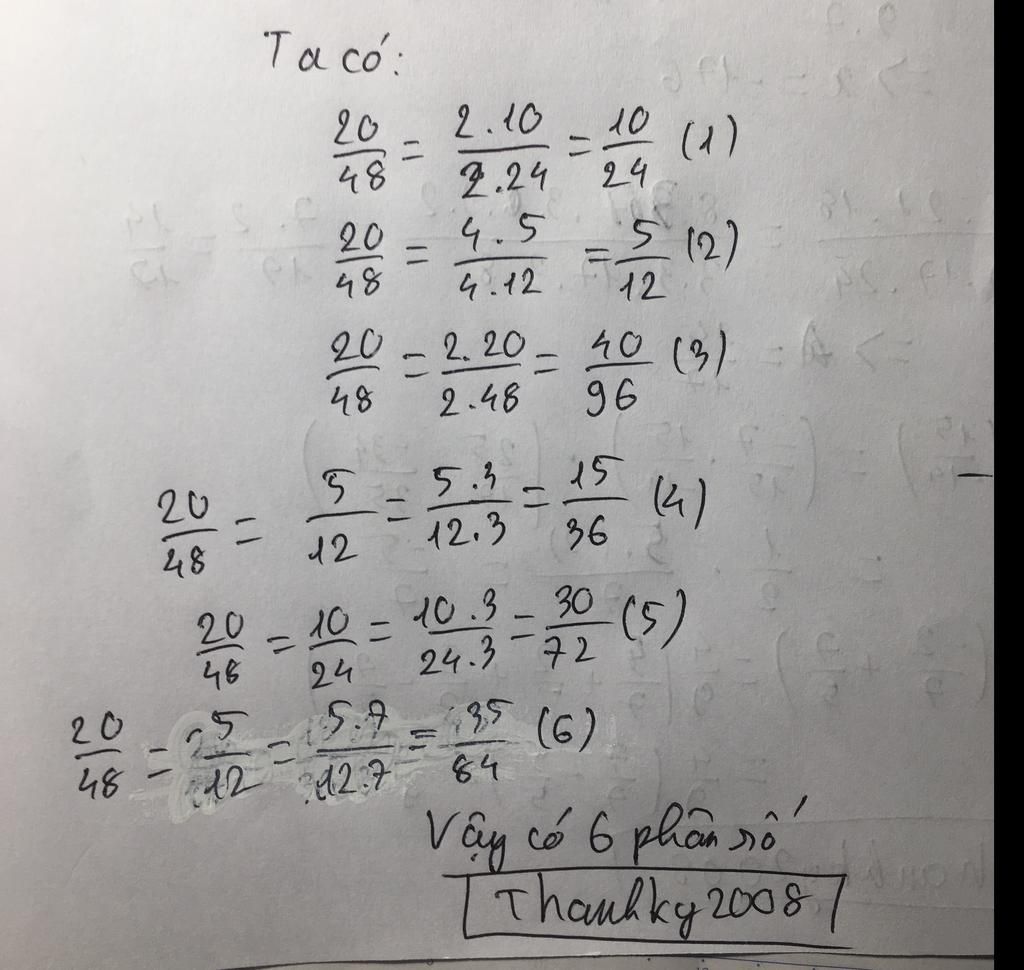 Ta có:
20/48 = 2.10/2.24 = 10/24 (1)
20/48 = 4.5/4.12 = 5/12 (2)
20/48 = 2.20/2.48 = 40/96 (3)
20/48 = 5/12 = 5.3/12.3 = 15/36 (4)
20/48 = 10/24 = 10.3/24.3 = 30/72 (5)
20/48 = 5/12 = 5.7/12.7 = 35/84 (6)
Vậy có 6 phân số
Thanhky2008